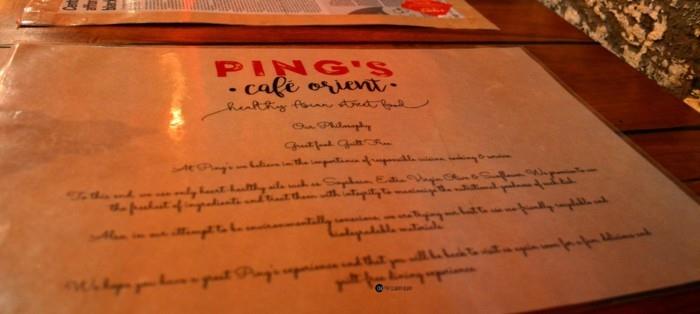 PING'S
• café orient •
healthy Asian street food
Our Philosophy
Great food. Guilt Free.
At Ping's we believe in the importance of responsible cuisine, cooking & service
To this end, we use only heart-healthy oils such as Soyabean, Extra Virgin Olive & Sunflower. We promise to use
the freshest of ingredients and treat them with integrity to maximize the nutritional goodness of each dish.
Also, in our attempt to be environmentally conscious, we are trying our best to use eco friendly, recyclable and
biodegradable materials
We hope you have a great Ping's experience and that you will be back to visit us again soon for a fun, delicious and
guilt-free dining experience